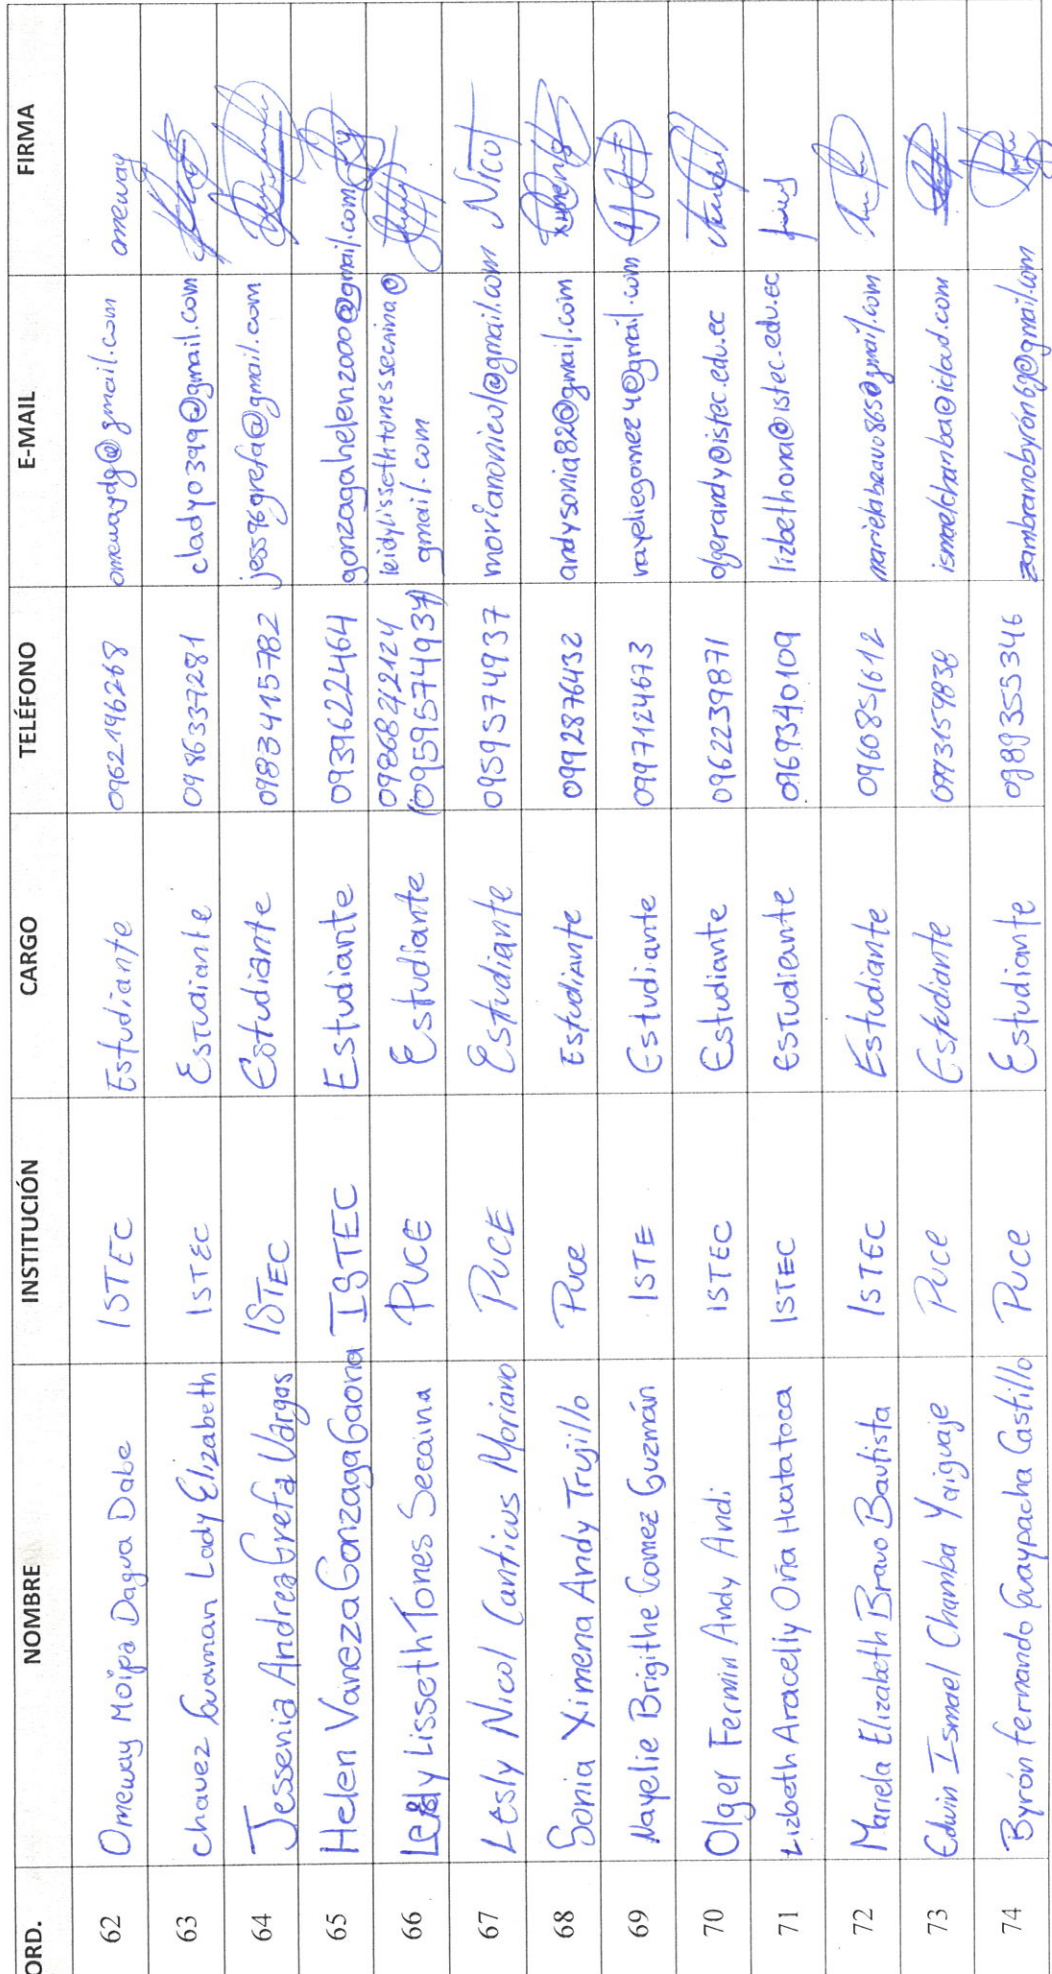 ORD. NOMBRE INSTITUCIÓN CARGO TELÉFONO E-MAIL FIRMA
62 Omeway Moipa Dagua Dabe ISTEC Estudiante 0962196268 omewaydg@gmail.com omeway
63 chavez Guaman Lady Elizabeth ISTEC Estudiante 0986337281 clady0399@gmail.com
64 Jessenia Andrea Grefa Vargas ISTEC Estudiante 0983415782 jess96grefa@gmail.com
65 Helen Vaneza Gonzaga Gaona ISTEC Estudiante 0939622464 gonzagahelen2000@gmail.com
66 Leidy Lisseth Tones Secaina PUCE Estudiante 0986822124 leidylissethtonessecaina@
(0959574937) gmail.com
67 Lesly Nicol Canticus Moriano PUCE Estudiante 0959574937 morianonicol@gmail.com Nicol
68 Sonia Ximena Andy Trujillo Puce Estudiante 0992876432 andysonia82@gmail.com
69 Nayelie Brigithe Gomez Guzmán ISTE Estudiante 0997124673 nayeliegomez4@gmail.com
70 Olger Fermin Andy Andi ISTEC Estudiante 0962239871 olgerandy@istec.edu.ec
71 Lizbeth Aracelly Oña Huatatoca ISTEC Estudiante 0969340109 lizbethona@istec.edu.ec
72 Mariela Elizabeth Bravo Bautista ISTEC Estudiante 0960851612 marielabravo865@gmail.com
73 Edwin Ismael Chamba Yaiguaje PUCE Estudiante ismaelchamba@iclod.com
74 Byrón Fernando Guaypacha Castillo Puce Estudiante 0989355346 zambranobyrón69@gmail.com